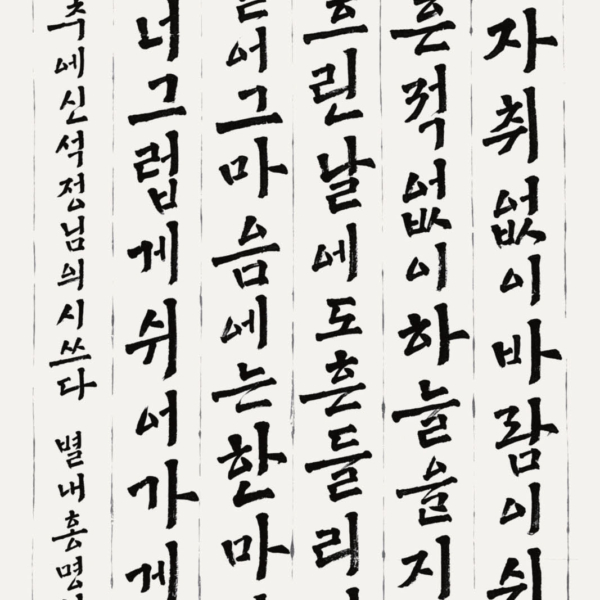 자취없이바람이쉬
흔적없이하늘을지
흐린날에도흔들리
어그마음에는한마
너그럽게쉬어가게
추에신석정님의시쓰다 별내홍명